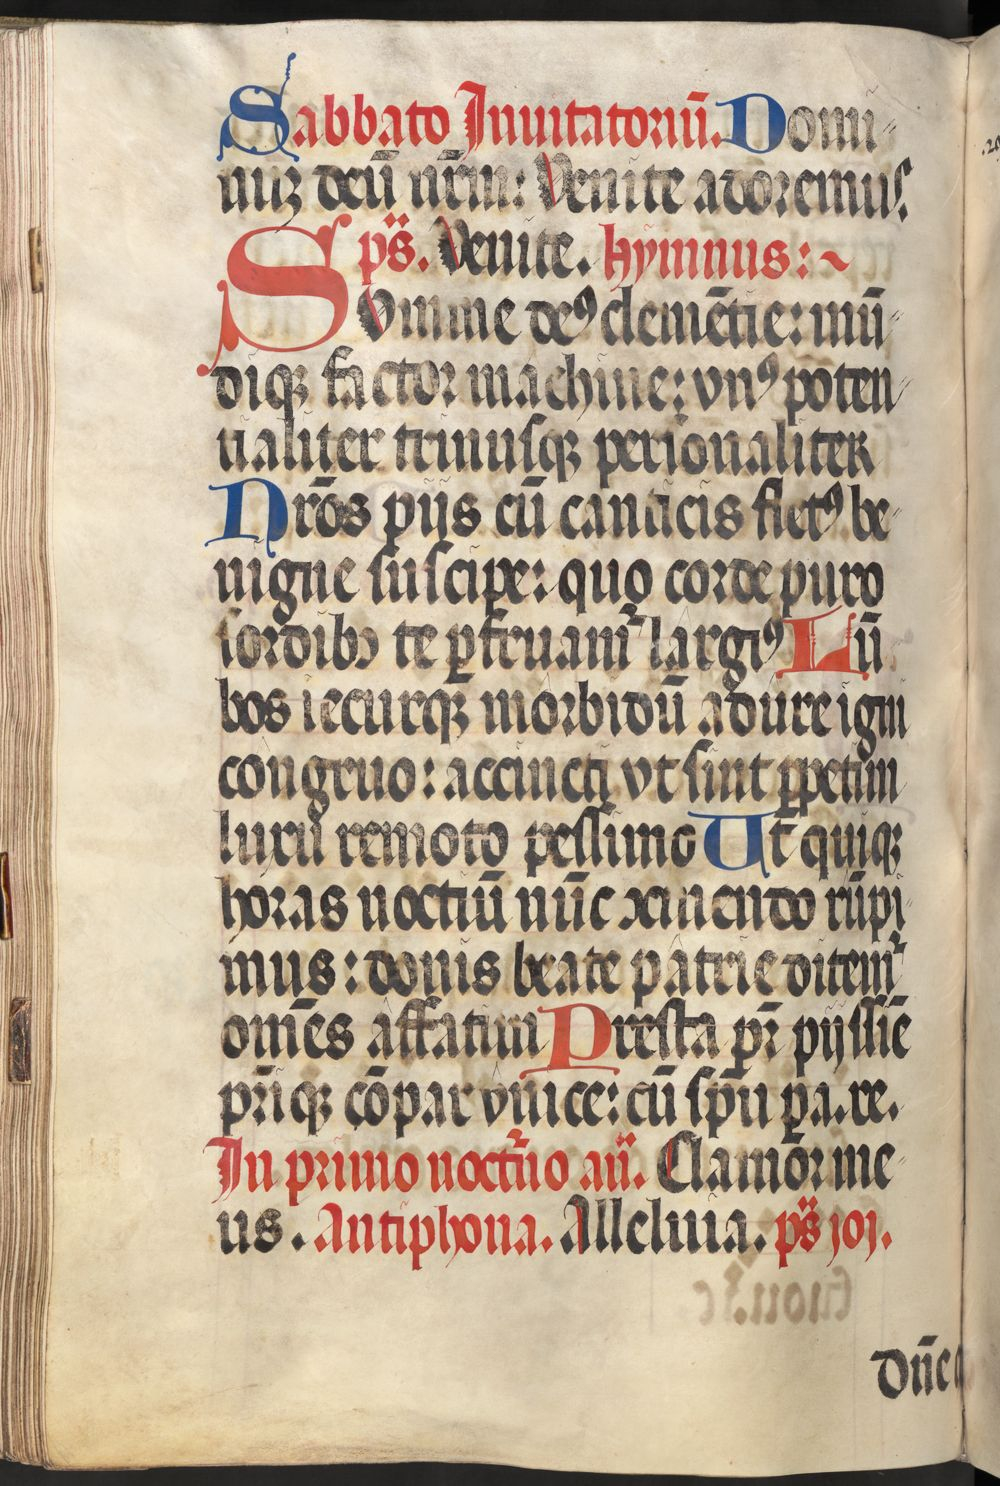 Sabbato Inuitatoriū. Domi
nuꝫ deū nr̄m: Venite adoremus.
ps̄. Venite. hymnus:~
SVmme deꝰ clemētie: mū
diqꝫ factor machine: vnꝰ poten
tialiter trinusqꝫ personaliter
Nr̄os pijs cū canticis fletꝰ be
nigne suscipe: quo corde puro
sordibꝫ te ꝑfruamᷣ largiꝰ Lū
bos iecurqꝫ morbidū adure igni
congruo: accincti vt sint ꝑpetim
luxu remoto pessimo Ut quiqꝫ
horas noctiū nūc concinendo rūpi
mus: donis beate patrie ditemᷣ
omēs affatim Presta pr̄ pijssīe
pr̄iqꝫ cōpar vnice: cū sp̄u pa. re.
In primo noctᷣno an̄. Clamor me
us. Antiphona. Alleluia. ps̄ 101.
Dn̄e